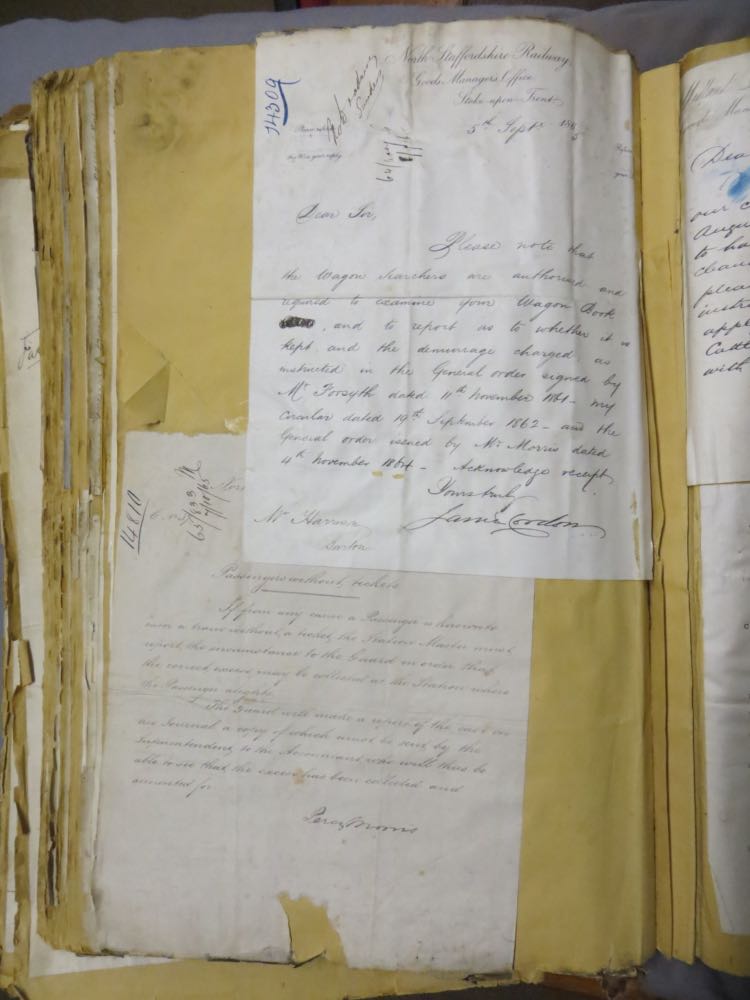 North Staffordshire Railway,
Goods Managers Office
Stoke-upon-Trent
14309
5th Sept 1865
Dear Sir,
Please note that
the Wagon Searchers are authorised and
required to examine your Wagon Book
, and to report as to whether it is
kept and the demurrage charged, as
instructed in the General order signed by
Mr Forsyth dated 11th November 1861 - my
Circular dated 19th September 1862 - and the
General order issued by Mr Morris dated
4th November 1864 - Acknowledge receipt
Yours truly
Mr
Barton
14810
Passengers without tickets
If from any cause a Passenger is
a train without a ticket, the Station Master must
report the circumstance to the Guard in order that
the correct excess may be collected at the Station where
the Passenger alights.
The Guard will make a report of the case on
Journal a copy of which must be sent by the
Superintendent to the Accountant, who will thus be
able to see that the excess has been collected and
accounted for
Percy Morris
Dea
our c
Augu
to ha
clean
plea
instr
appl
Catt
with